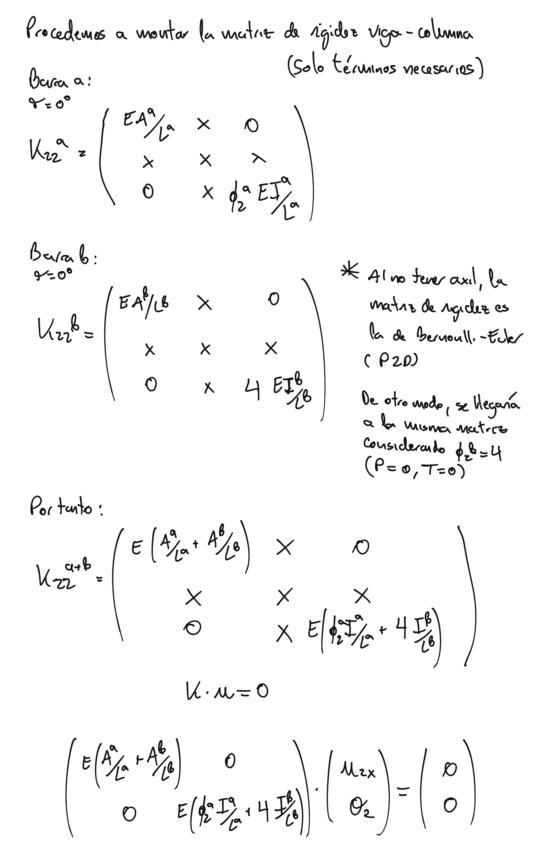 Procedemos a montar la matriz de rigidez viga-columna
(Solo términos necesarios)
Barra a:
γ=0°
K₂₂ᵃ = ( EAᵃ/Lᵃ x 0
x x x
0 x ϕ₂ᵃ EIᵃ/Lᵃ )
Barra b:
γ=0°
K₂₂ᵇ = ( EAᵇ/Lᵇ x 0
x x x
0 x 4 EIᵇ/Lᵇ )
* Al no tener axil, la
matriz de rigidez es
la de Bernoulli-Euler
(P2D)
De otro modo, se llegaría
a la misma matriz
considerando ϕ₂ᵇ=4
(P=0, T=0)
Por tanto:
K₂₂ᵃ⁺ᵇ = ( E(Aᵃ/Lᵃ + Aᵇ/Lᵇ) x 0
x x x
0 x E(ϕ₂ᵃIᵃ/Lᵃ + 4 Iᵇ/Lᵇ) )
K·u=0
( E(Aᵃ/Lᵃ + Aᵇ/Lᵇ) 0
0 E(ϕ₂ᵃIᵃ/Lᵃ + 4 Iᵇ/Lᵇ) ) · ( u₂ₓ θ₂ ) = ( 0 0 )